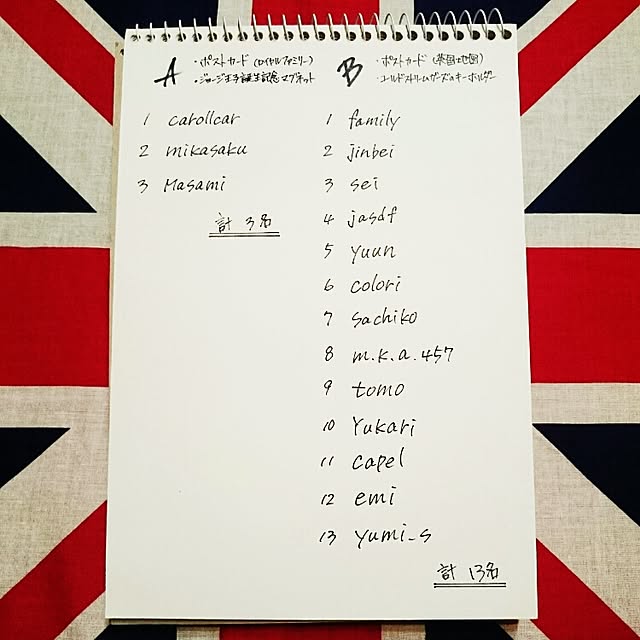 A
・ポストカード (ロイヤルファミリー)
・ジョージ王子誕生記念マグネット
1 carollcar
2 mikasaku
3 Masami
計 3名
B
・ポストカード (英国地図)
・コールドストリームガーズのキーホルダー
1 family
2 jinbei
3 sei
4 jasdf
5 yuun
6 colori
7 sachiko
8 m.k.a.457
9 tomo
10 Yukari
11 capel
12 emi
13 yumi_s
計 13名